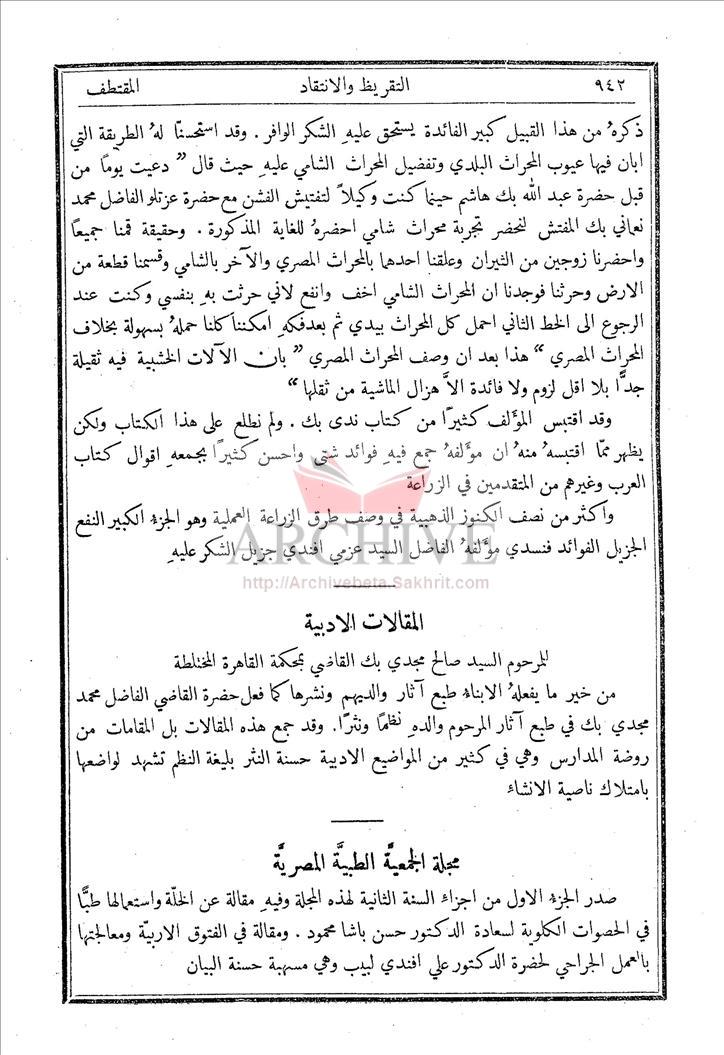 ٩٤٢ التقريظ والانتقاد المقتطف
ذكرهُ من هذا القبيل كبير الفائدة يستحق عليهِ الشكر الوافر . وقد استحسنّا لهُ الطريقة التي
ابان فيها عيوب المحراث البلدي وتفضيل المحراث الشامي عليهِ حيث قال " دعيت يومًا من
قبل حضرة عبد الله بك هاشم حينما كنت وكيلاً لتفتيش الفشن مع حضرة عزتلو الفاضل محمد
نعاني بك المفتش لنحضر تجربة محراث شامي احضرهُ للغاية المذكورة . وحقيقة قمنا جميعًا
واحضرنا زوجين من الثيران وعلقنا احدهما بالمحراث المصري والآخر بالشامي وقسمنا قطعة من
الارض وحرثنا فوجدنا ان المحراث الشامي اخف وانفع لاني حرثت بهِ بنفسي وكنت عند
الرجوع الى الخط الثاني احمل كل المحراث بيدي ثم بعد فكهِ امكننا كلنا حملهُ بسهولة بخلاف
المحراث المصري " هذا بعد ان وصف المحراث المصري " بان الآلات الخشبية فيه ثقيلة
جدًّا بلا اقل لزوم ولا فائدة الاَّ هزال الماشية من ثقلها "
وقد اقتبس المؤلف كثيرًا من كتاب ندى بك . ولم نطلع على هذا الكتاب ولكن
يظهر ممّا اقتبسهُ منهُ ان مؤلفهُ جمع فيهِ فوائد شتى واحسن كثيرًا بجمعهِ اقوال كتاب
العرب وغيرهم من المتقدمين في الزراعة
واكثر من نصف الكنوز الذهبية في وصف طرق الزراعة العملية وهو الجزء الكبير النفع
الجزيل الفوائد فنسدي مؤلفهُ الفاضل السيد عزمي افندي جزيل الشكر عليهِ
ARCHIVE
http://Archivebeta.Sakhrit.com
المقالات الادبية
للمرحوم السيد صالح مجدي بك القاضي بمحكمة القاهرة المختلطة
من خير ما يفعلهُ الابناء طبع آثار والديهم ونشرها كما فعل حضرة القاضي الفاضل محمد
مجدي بك في طبع آثار المرحوم والدهِ نظمًا ونثرًا. وقد جمع هذه المقالات بل المقامات من
روضة المدارس وهي في كثير من المواضيع الادبية حسنة النثر بليغة النظم تشهد لواضعها
بامتلاك ناصية الانشاء
مجلة الجمعيَّة الطبيَّة المصريَّة
صدر الجزء الاول من اجزاء السنة الثانية لهذه المجلة وفيهِ مقالة عن الخلّة واستعمالها طبًّا
في الحصوات الكلوية لسعادة الدكتور حسن باشا محمود . ومقالة في الفتوق الاربيّة ومعالجتها
بالعمل الجراحي لحضرة الدكتور علي افندي لبيب وهي مسهبة حسنة البيان